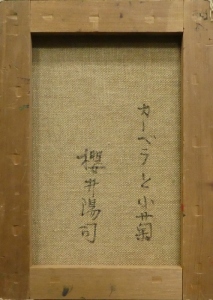 カーベラと小菊
櫻井陽司